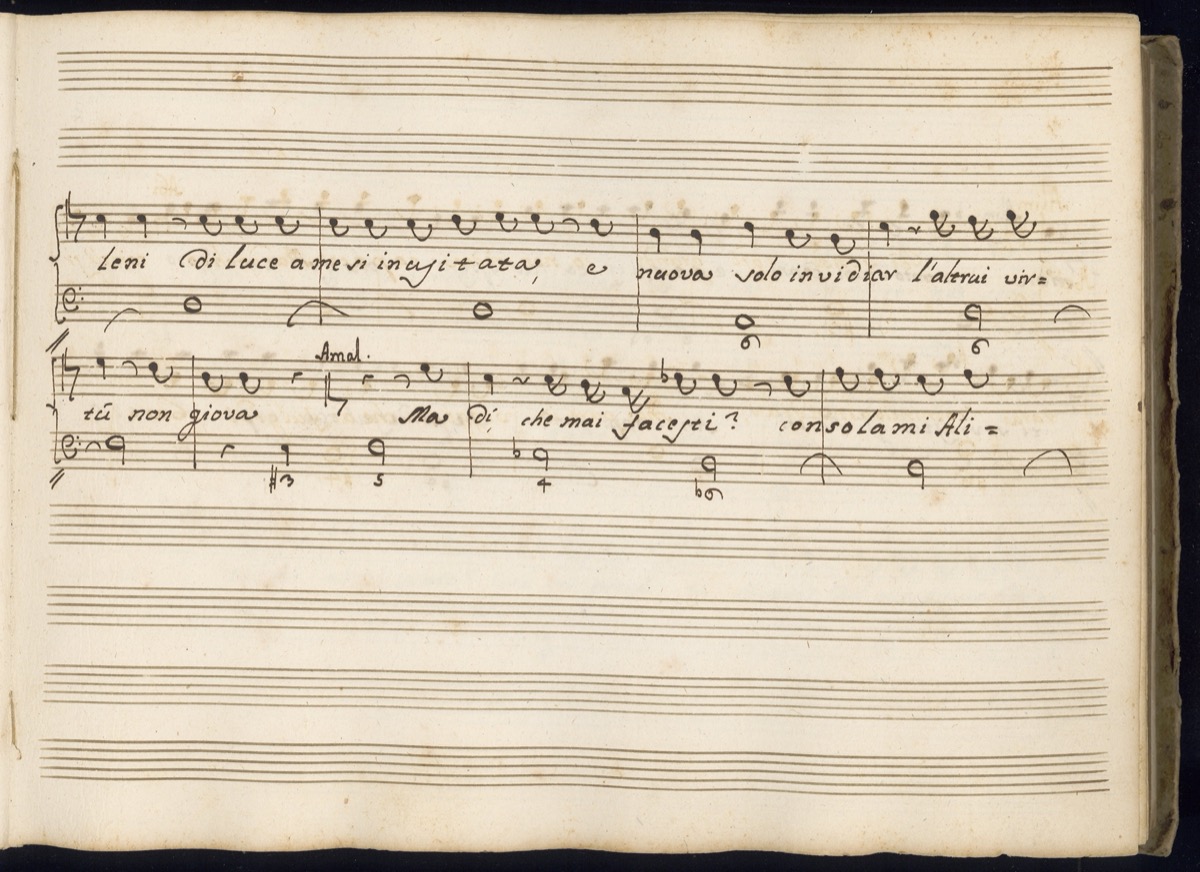 leni di luce a me si inusitata, e nuova solo invidiar l'altrui vir=
Amal.
tù non giova Ma dì, che mai facesti? consolami Ali=